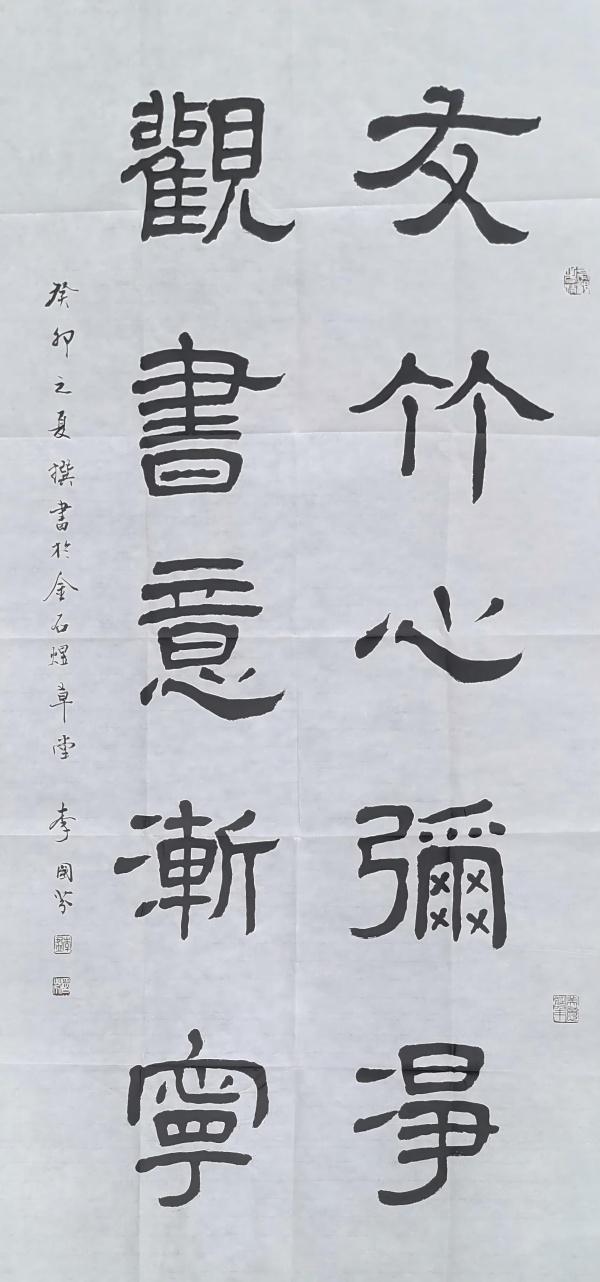 友竹心彌淨
觀書意漸寧
癸卯之夏撰書於金石煜草堂 李國芬